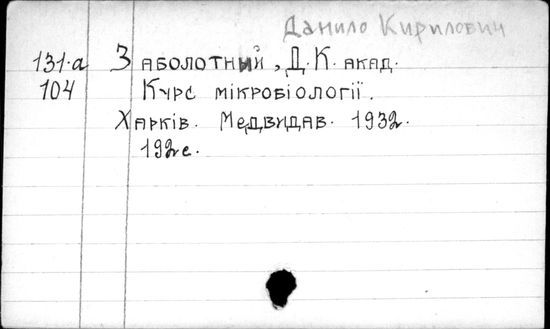 Данило Кирилович
131-а Заболотний, Д.К. акад.
104 Курс мікробіології.
Харків. Медвидав. 1932.
192с.